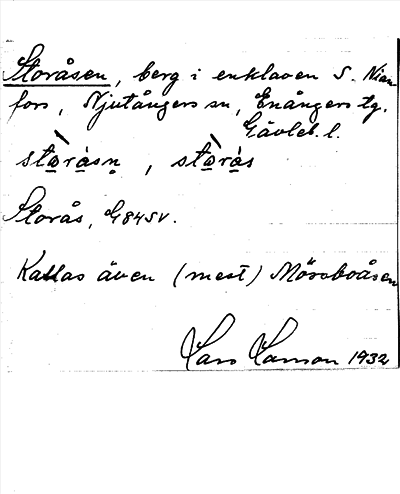 Storåsen, berg i enklaven S. Nian-
fors, Njutångers sn, Enångers tg.
Gävleb. l.
storåsn, storås
Storås, G84SV.
Kallas även (mest) Mörsboåsen
Lars Larsson 1932